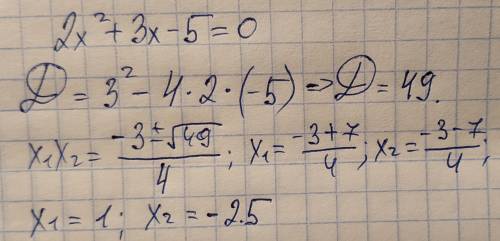 2x²+3x-5=0
D = 3² - 4·2·(-5) ⇒ D = 49.
x₁x₂ = (-3±√49)/4 ; x₁ = (-3+7)/4 ; x₂ = (-3-7)/4 ;
x₁ = 1 ; x₂ = -2.5